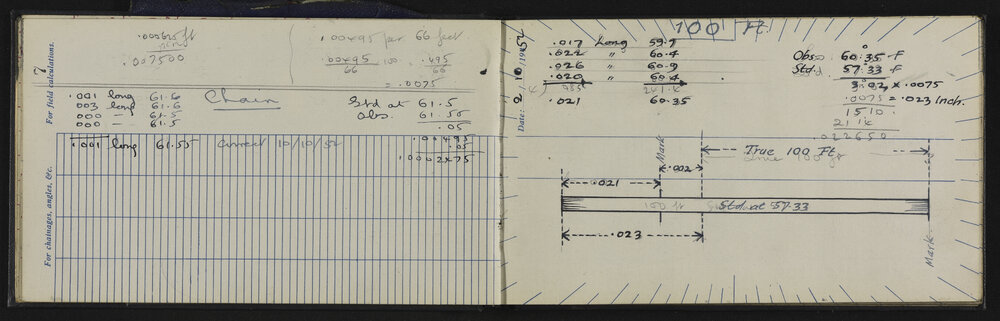 .000625 ft
.007500
.00495 per 66 feet
.00495 100 .495
66 66
= .0075
7
For field calculations.
.001 long 61.6
003 long 61.6
000 — 61.5
000 — 61.5
Chain
Std at 61.5
Obs. 61.55
.05
.001 long 61.55 Correct 10/10/52
.00495
.05
.0002475
For chainages, angles, &c.
100 Ft.
Date: 2/10/1952
.017 Long 59.7
.022 " 60.4
.026 " 60.9
.020 " 60.4
4) 085 241.4
.021 60.35
Obs. 60.35 F
Std. 57.33 F
3.02 × .0075
.0075 = .023 Inch.
1510.
.022650
True 100 Ft.
Mark
.002
.021
100 ft Std. at 57.33
.023
Mark